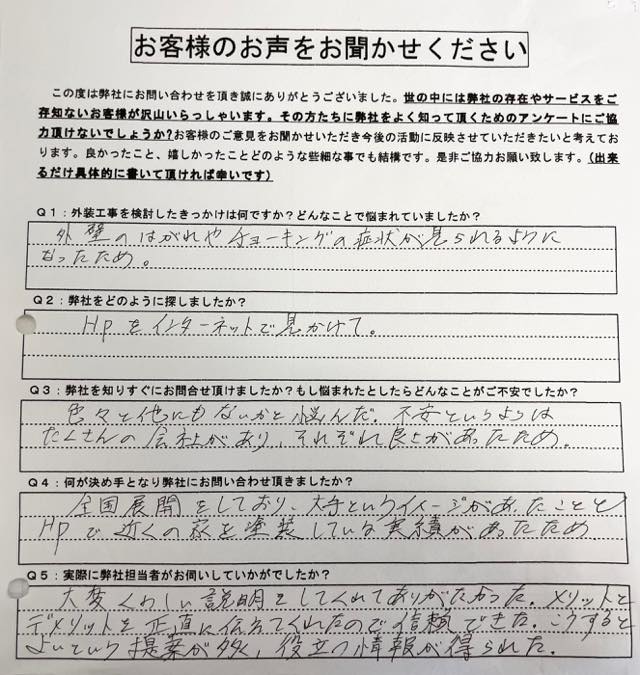 お客様のお声をお聞かせください
この度は弊社にお問い合わせを頂き誠にありがとうございました。世の中には弊社の存在やサービスをご
存知ないお客様が沢山いらっしゃいます。その方たちに弊社をよく知って頂くためのアンケートにご協
力頂けないでしょうか?お客様のご意見をお聞かせいただき今後の活動に反映させていただきたいと考えて
おります。良かったこと、嬉しかったことどのような些細な事でも結構です。是非ご協力お願い致します。(出来
るだけ具体的に書いて頂ければ幸いです)
Q1:外装工事を検討したきっかけは何ですか?どんなことで悩まれていましたか?
外壁のはがれやチョーキングの症状が見られるように
なったため。
Q2:弊社をどのように探しましたか?
Hpをインターネットで見かけて。
Q3:弊社を知りすぐにお問合せ頂けましたか?もし悩まれたとしたらどんなことがご不安でしたか?
色々と他にもないかと悩んだ。不安というよりは
たくさんの会社があり、それぞれ良さがあったため。
Q4:何が決め手となり弊社にお問い合わせ頂きましたか?
全国展開をしており、大手というイメージがあったことと
Hpで近くの家を塗装している実績があったため
Q5:実際に弊社担当者がお伺いしていかがでしたか?
大変くわしい説明をしてくれてありがたかった。メリットと
デメリットを正直に伝えてくれたので信頼できた。こうすると
よいという提案が多く、役立つ情報が得られた。